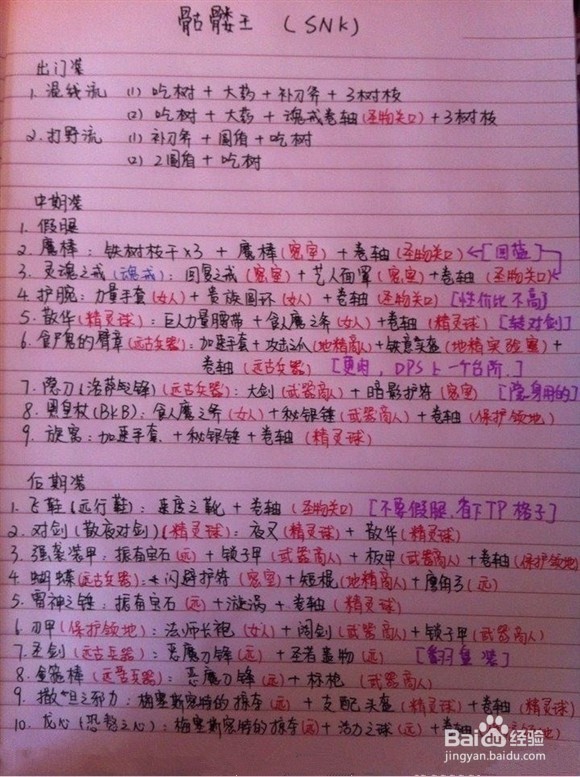 骷髅王 (SNK)
出门装
1. 混线流 (1) 吃树 + 大药 + 补刀斧 + 3树枝
(2) 吃树 + 大药 + 魂戒卷轴(圣物关口) + 3树枝
2. 打野流 (1) 补刀斧 + 圆盾 + 吃树
(2) 2圆盾 + 吃树
中期装
1. 假腿
2. 魔棒: 铁树枝干×3 + 魔棒(密室) + 卷轴(圣物关口) ←[回蓝]
3. 灵魂之戒(魂戒): 回复之戒(密室) + 艺人面罩(密室) + 卷轴 (圣物关口)
4. 护腕: 力量手套(女人) + 贵族圆环(女人) + 卷轴(圣物关口) [性价比不高]
5. 散华(精灵球): 巨人力量腰带 + 食人魔之斧(女人) + 卷轴 (精灵球) [转对剑]
6. 食尸鬼的臂章(远古兵器): 加速手套 + 攻击之爪(地精商人) + 铁意头盔(地精实验室) +
卷轴(远古兵器) [更肉, DPS上一个台阶.]
7. 隐刀(洛萨之锋)(远古兵器): 大剑(武器商人) + 暗影护符(密室) [隐身用的]
8. 黑皇杖(BKB): 食人魔之斧(女人) + 秘银锤(武器商人) + 卷轴(保护领地)
9. 旋涡: 加速手套 + 秘银锤 + 卷轴 (精灵球)
后期装
1. 飞鞋(远行鞋): 速度之靴 + 卷轴(圣物关口) [不要假腿,省下TP格子]
2. 对剑(散夜对剑)(精灵球): 夜叉(精灵球) + 散华(精灵球)
3. 强袭装甲: 振奋宝石(远) + 锁子甲(武器商人) + 板甲(武器商人) + 卷轴(保护领地)
4. 蝴蝶(远古兵器): 闪避护符(密室) + 短棍(地精商人) + 鹰角弓(远)
5. 雷神之锤: 振奋宝石(远) + 漩涡 + 卷轴 (精灵球)
6. 刃甲(保护领地): 法师长袍(女人) + 阔剑(武器商人) + 锁子甲(武器商人)
7. 圣剑(远古兵器): 恶魔刀锋(远) + 圣者遗物(远) [翻盘装]
8. 金箍棒(远古兵器): 恶魔刀锋(远) + 标枪 (武器商人)
9. 撒旦之邪力: 梅塞斯密特的掠夺 (远) + 支配头盔(精灵球) + 卷轴(精灵球)
10. 龙心(恐鳌之心): 梅塞斯密特的掠夺(远) + 活力之球(远) + 卷轴
Baidu经验
jingyan.baidu.com